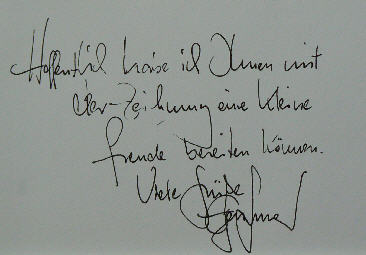 Hoffentlich habe ich Ihnen mit
der Zeichnung eine kleine
Freude bereiten können.
Viele Grüße